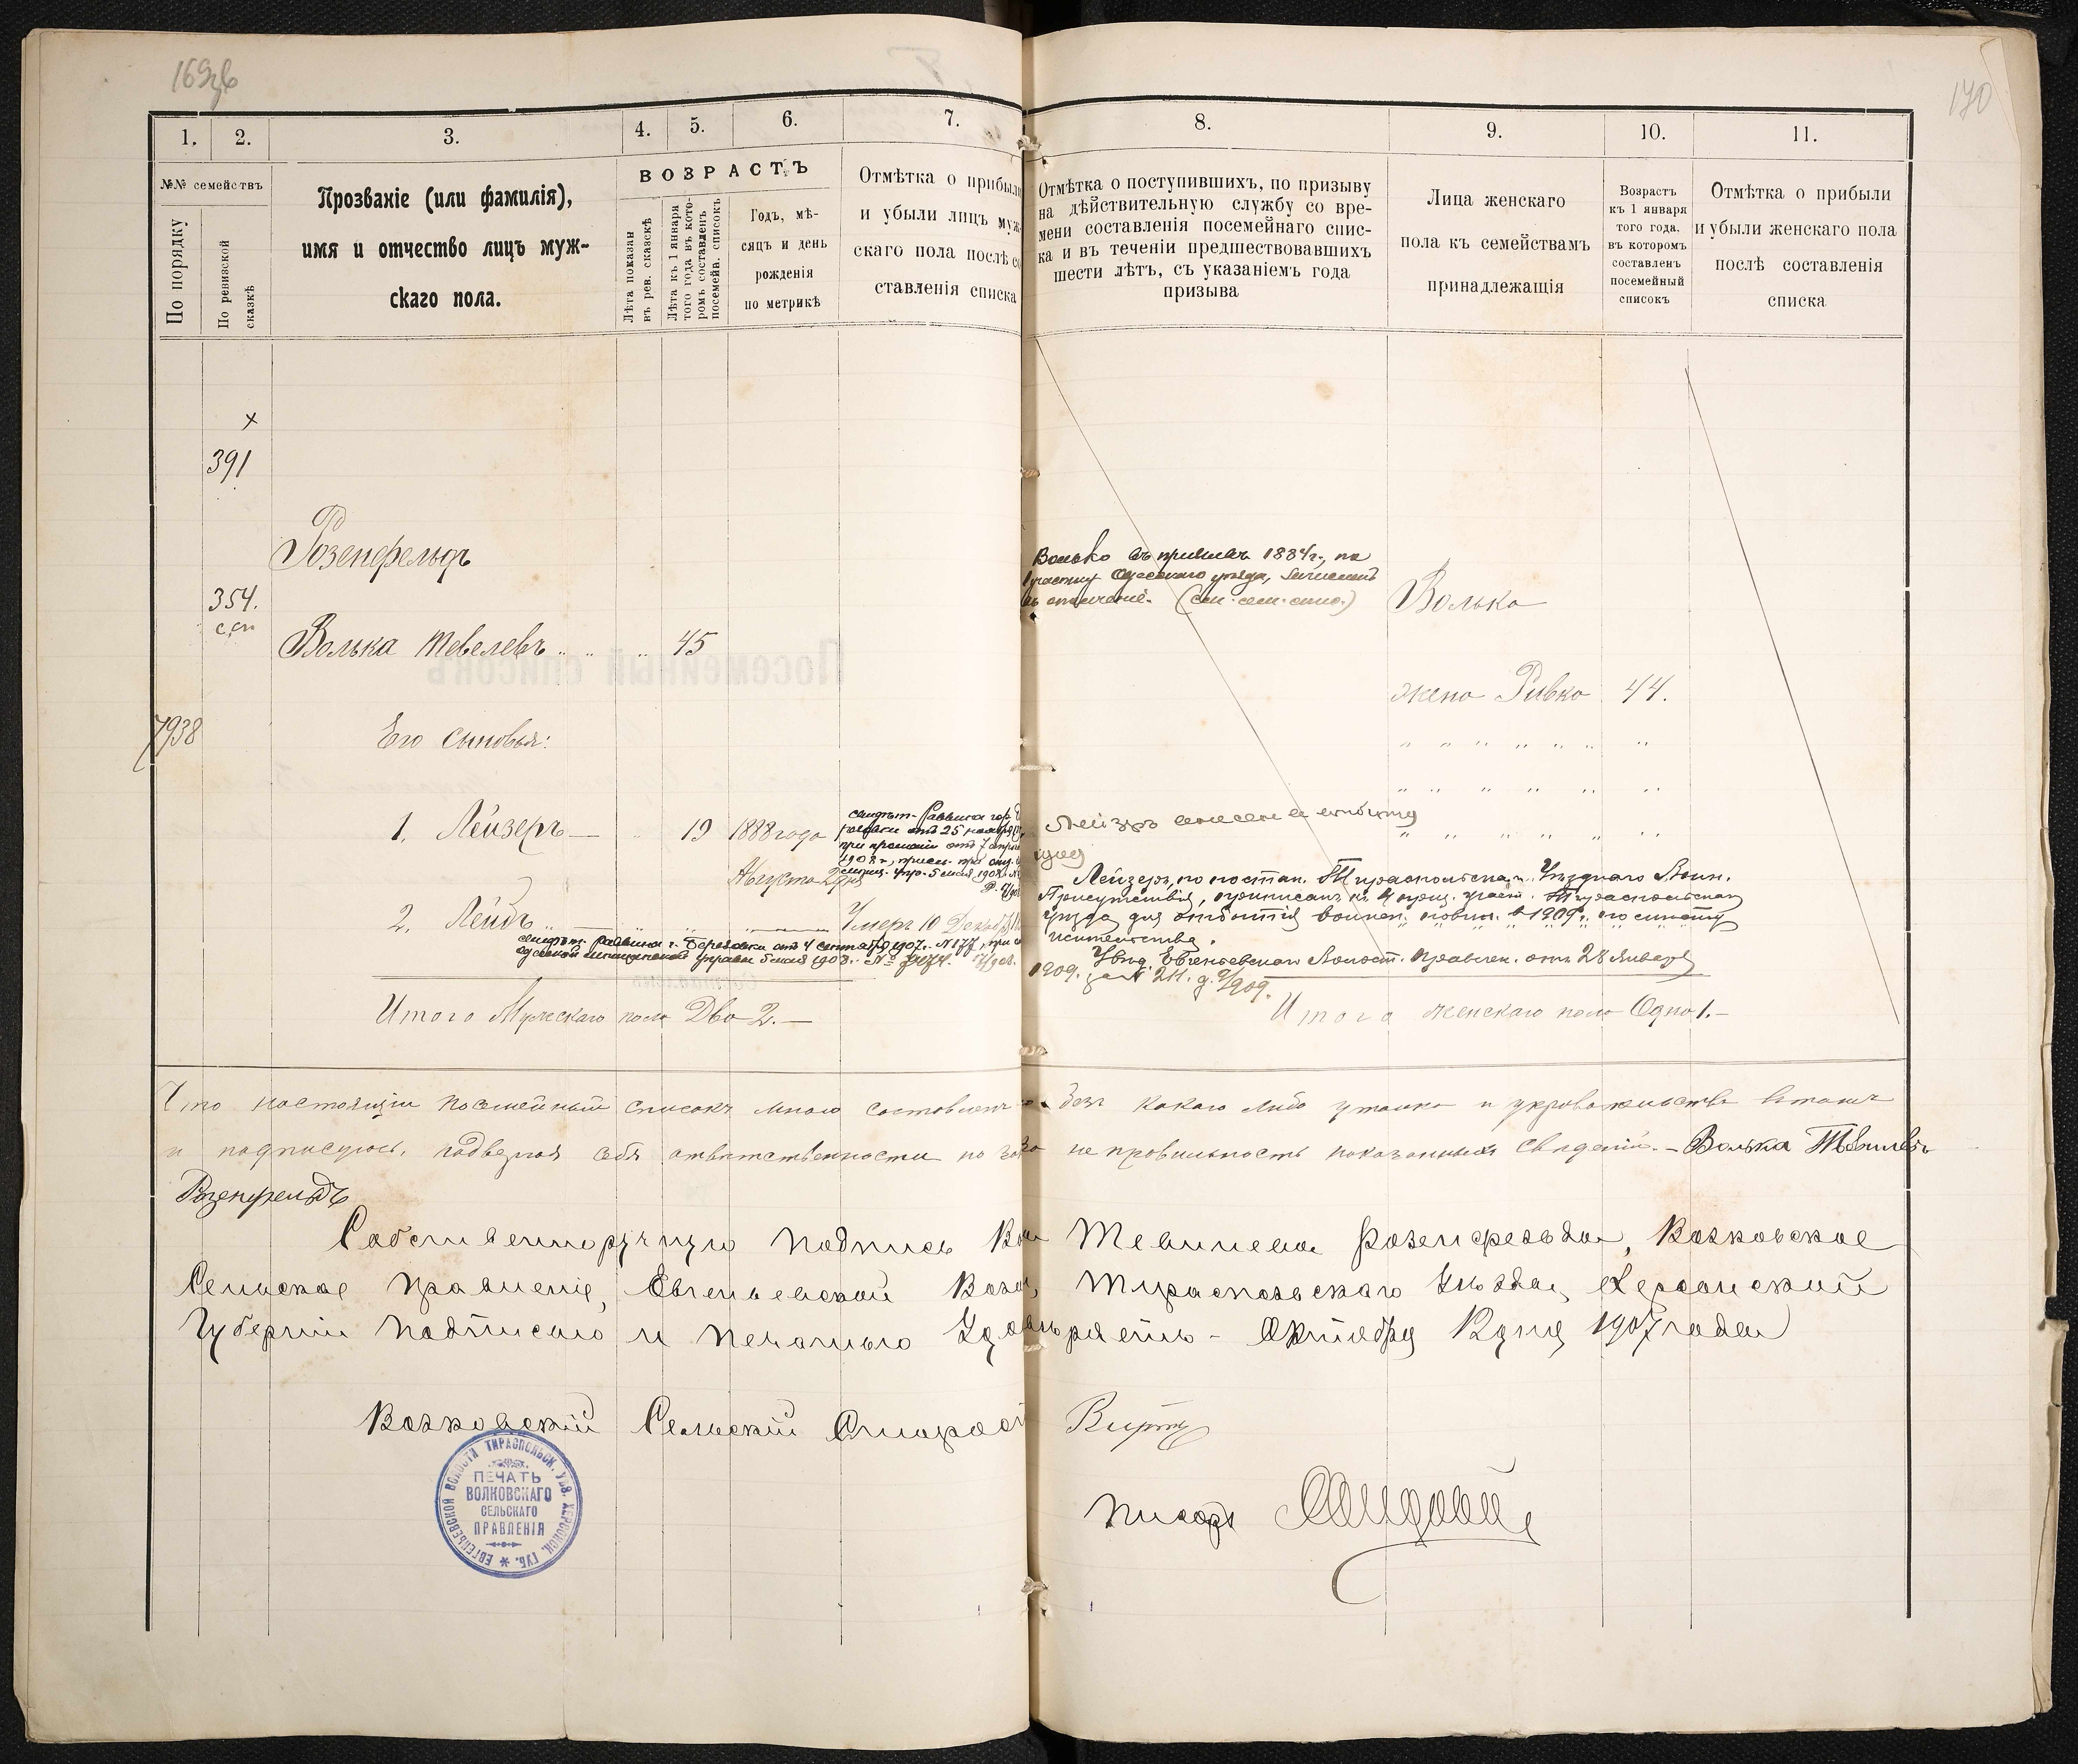 169об
170
1. 2. 3. 4. 5. 6. 7. 8. 9. 10. 11.
№№ семействъ
По порядку
По ревизской сказкѣ
Прозваніе (или фамилія),
имя и отчество лицъ муж-
скаго пола.
ВОЗРАСТЪ
Лѣта показан
въ рев. сказкѣ
Лѣта къ 1 января
того года въ кото-
ромъ составленъ
посемейн. списокъ
Годъ, мѣ-
сяцъ и день
рожденія
по метрикѣ
Отмѣтка о прибыли
и убыли лицъ муж-
скаго пола послѣ со
ставленія списка
Отмѣтка о поступившихъ, по призыву
на дѣйствительную службу со вре-
мени составленія посемейнаго спис-
ка и въ теченіи предшествовавшихъ
шести лѣтъ, съ указаніемъ года
призыва
Лица женскаго
пола къ семействамъ
принадлежащія
Возрастъ
къ 1 января
того года,
въ которомъ
составленъ
посемейный
списокъ
Отмѣтка о прибыли
и убыли женскаго пола
послѣ составленія
списка
х
391
Розенфельдъ
354.
Волька Тевелевъ 45
Волько въ призывъ 1884г., по
участку Одесскаго уѣзда, зачисленъ
въ ополченіе.
Волька
жена Ривка 44.
7938
Его сыновья:
1. Лейзеръ 19 1888 года
Августа 2 дня
свидѣт. Раввина гор.
отъ 25 ноября
при прошеніи отъ 7 апрѣля
1908 г.,
5 мая 1908
Лейзеръ
Лейзеръ, по постан. Тираспольска. Уѣзднаго Воин.
Присутствія, приписанъ къ 4 приз. участ. Тираспольскаго
уѣзда для отбытія воинск. повин. въ 1909 г. по
жительства.
Увѣд. Евгеньевскаго Волост. Правлен. отъ 28 Января
1909. за № 211.
2. Лейбъ Умеръ 10 Декабря
свидѣт. раввина г. Березовки отъ 4 сентября 1907 г. № 177, при
одесской мѣщанской управы 5 мая 1908 г. № 7074.
Итого Мужскаго пола Два 2.—
Итого женскаго пола Одна 1.—
Что настоящій посемейный списокъ мною составленъ безъ какого либо утайки и укрывательства въ томъ
и подписуюсь, подвергая себя отвѣтственности по закону за неправильность показанныхъ свѣденій. — Волька Тевилевъ
Розенфельдъ
Собственноручную подпись Тевилева Розенфельда, Волковское
Сельское Правленіе, Евгеньевской Волос, Тираспольскаго Уѣзда, Херсонской
Губерніи подписью и печатью удостовѣряетъ - Октября 12 дня 1907 года
Волковскій Сельскій Староста Виртъ
Писарь
ПЕЧАТЬ
ВОЛКОВСКАГО
СЕЛЬСКАГО
ПРАВЛЕНІЯ
ЕВГЕНЬЕВСКОЙ ВОЛОСТИ ТИРАСПОЛЬСК. УѢЗ. ХЕРСОНСК. ГУБ.